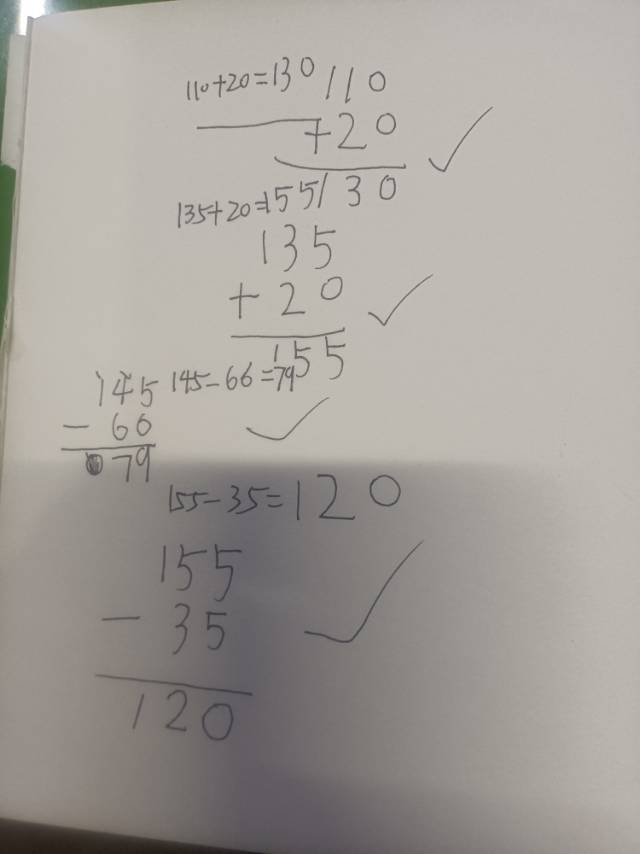 110+20=130
110
+20
130
135+20=155
135
+20
155
145-66=79
145
-66
79
155-35=120
155
-35
120